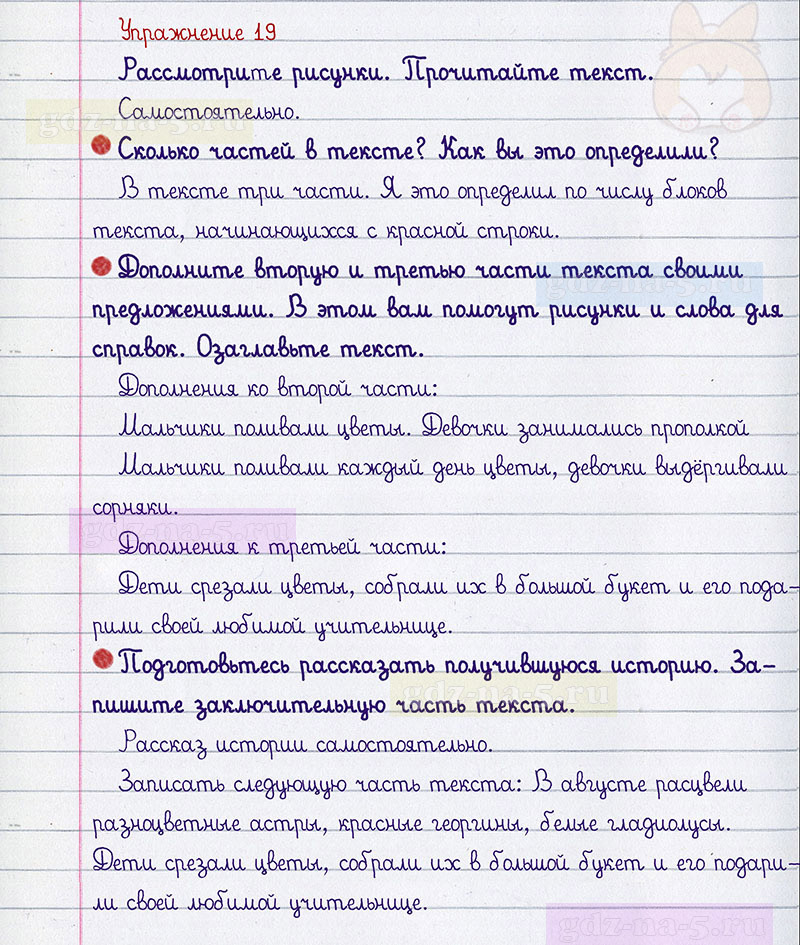 Упражнение 19
Рассмотрите рисунки. Прочитайте текст.
Самостоятельно.
gdz-na-5.ru
Сколько частей в тексте? Как вы это определили?
В тексте три части. Я это определил по числу блоков
текста, начинающихся с красной строки.
Дополните вторую и третью части текста своими
gdz-na-5.ru
предложениями. В этом вам помогут рисунки и слова для
справок. Озаглавьте текст.
Дополнения ко второй части:
Мальчики поливали цветы. Девочки занимались прополкой
Мальчики поливали каждый день цветы, девочки выдёргивали
сорняки.
gdz-na-5.ru
Дополнения к третьей части:
Дети срезали цветы, собрали их в большой букет и его пода-
рили своей любимой учительнице.
Подготовьтесь рассказать получившуюся историю. За-
gdz-na-5.ru
пишите заключительную часть текста.
Рассказ истории самостоятельно.
Записать следующую часть текста: В августе расцвели
разноцветные астры, красные георгины, белые гладиолусы.
Дети срезали цветы, собрали их в большой букет и его подари-
ли своей любимой учительнице.
gdz-na-5.ru